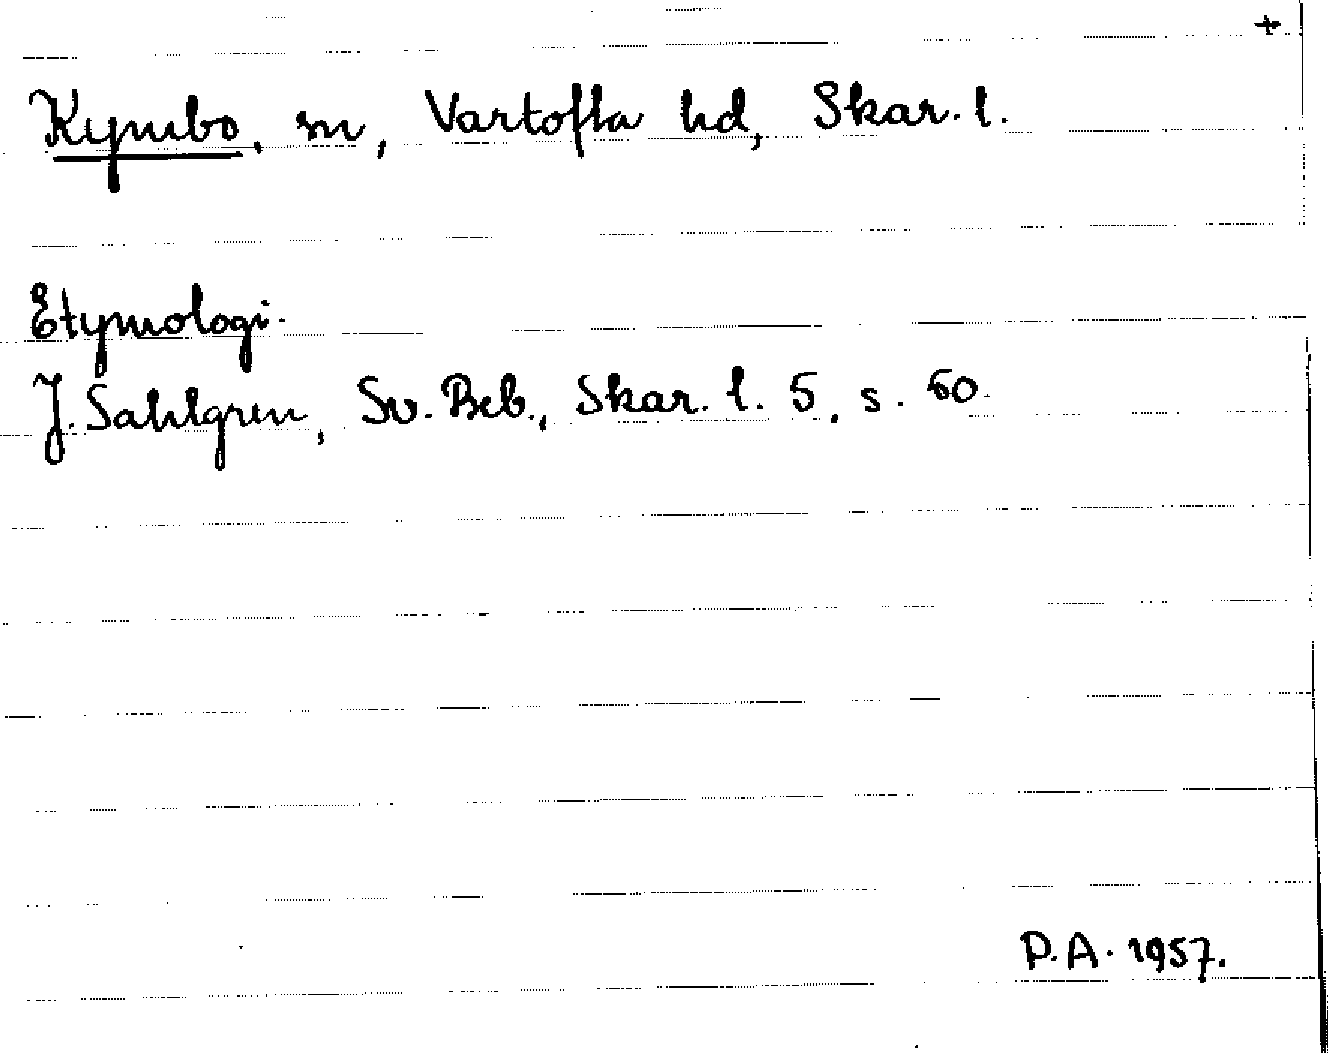 +
Kymbo, sn, Vartofta hd, Skar. l.
Etymologi.
J. Sahlgren, Sv. Beb., Skar. l. 5, s. 60.
P.A. 1957.